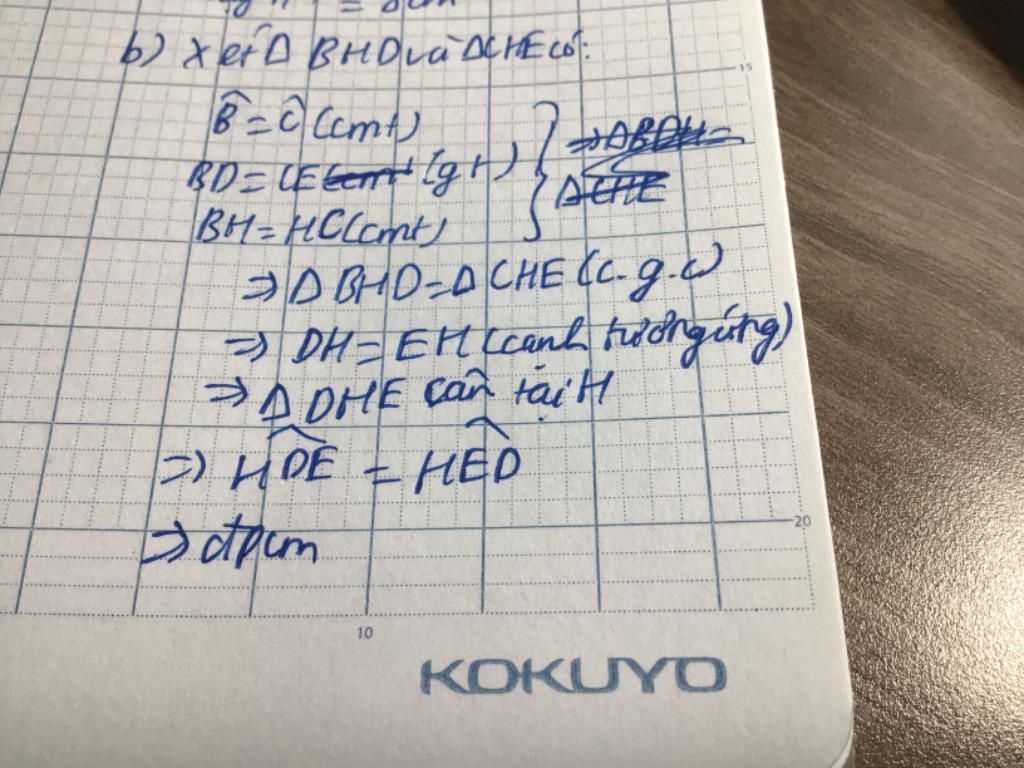 b) Xét Δ BHD và ΔCHE có:
15
B̂ = Ĉ (cmt)
BD = CE (gt)
BH = HC (cmt)
⇒ Δ BHD = Δ CHE (c.g.c)
⇒ DH = EH (cạnh tương ứng)
⇒ Δ DHE cân tại H
⇒ HD̂E = HÊD
20
⇒ đpcm
10
KOKUYO